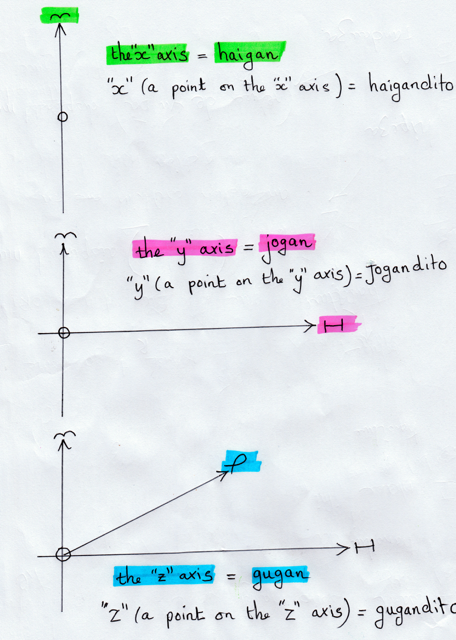 the "x" axis = haigan
"x" (a point on the "x" axis) = haigandito
the "y" axis = jogan
"y" (a point on the "y" axis) = Jogandito
H
the "z" axis = gugan
"Z" (a point on the "z" axis) = gugandito